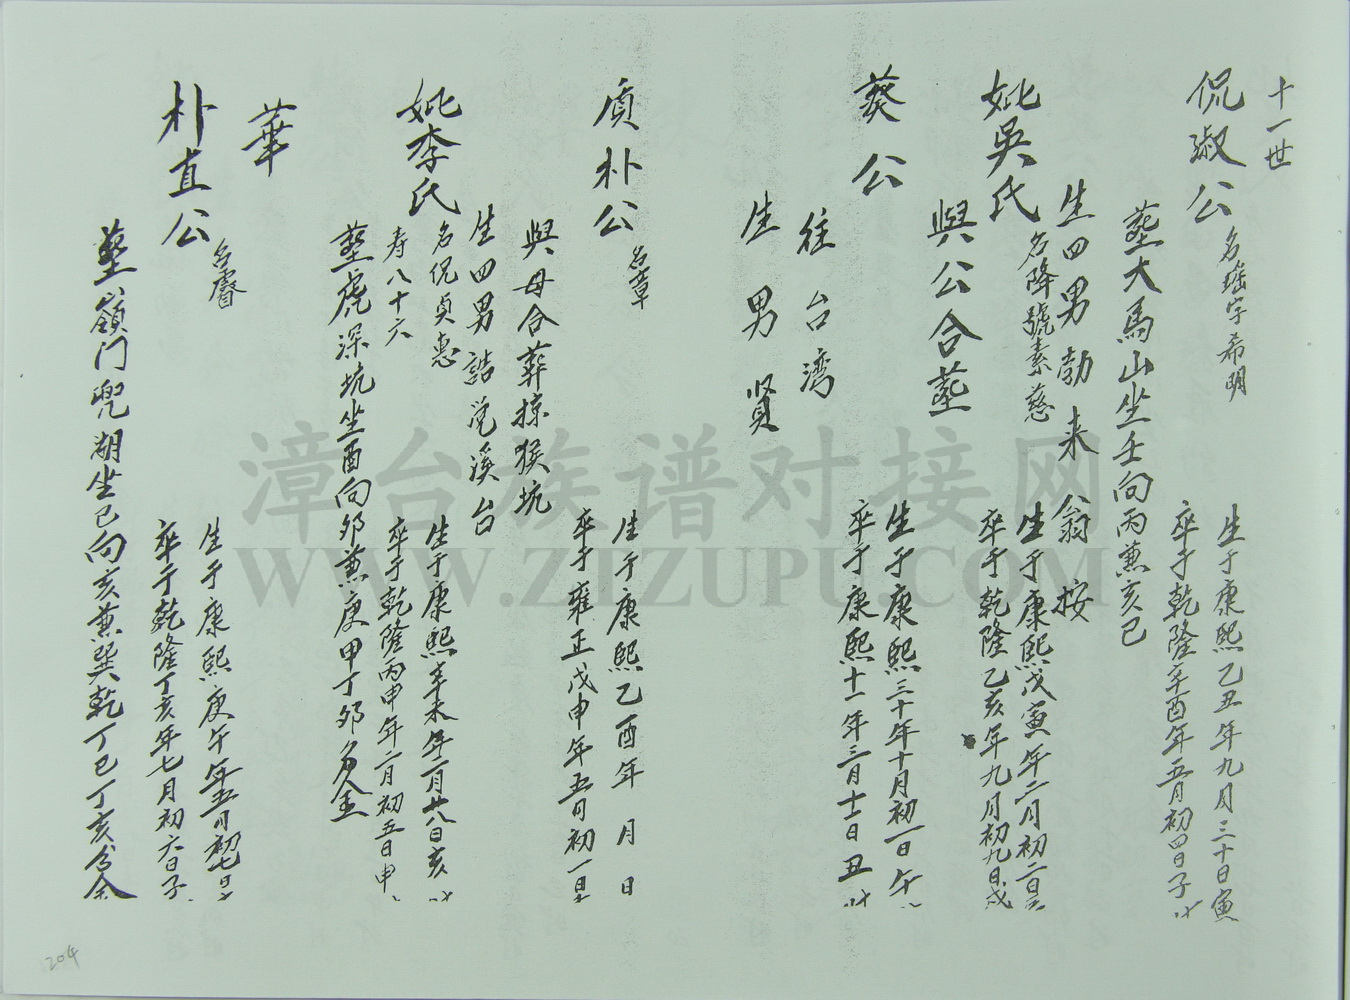 十一世
侃淑公
名瑤字希明
生于康熙乙丑年九月三十日寅
卒于乾隆辛酉年五月初四日子
塟大馬山坐壬向丙兼亥巳
生四男勃来翁按
妣吳氏
名降號素慈
生于康熙戊寅年二月初二日
卒于乾隆乙亥年九月初九日戌
與公合塟
葵公
生于康熙三十年十月初一日午
卒于康熙十一年三月十二日丑
往台湾
生男贤
质朴公
名章
生于康熙乙酉年 月 日
卒于雍正戊申年五月初一日
與母合葬掠猴坑
生四男誥党溪台
妣李氏
名侃貞惠
寿八十六
生于康熙辛未年二月廿八日亥
卒于乾隆丙申年二月初五日申
塟虎深坑坐酉向夘兼庚甲丁夘分金
華
朴直公
名睿
生于康熙庚午年五月初七日
卒于乾隆丁亥年七月初六日子
塟嶺门兜胡坐巳向亥兼巽乾丁巳丁亥分金
204
漳台族谱对接网
WWW.ZTZUPU.COM